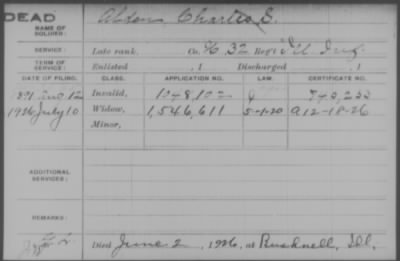 DEAD
NAME OF SOLDIER: Alden Charles S.
SERVICE: Late rank, Co. G 32 Reg't Ill Inf.
TERM OF SERVICE: Enlisted , 1 Discharged , 1
DATE OF FILING. CLASS. APPLICATION NO. LAW. CERTIFICATE NO.
1891 Aug 12 Invalid, 1048,102
1926 July 10 Widow, 1,546,611 5-1-20 A 12-18-26
Minor,
ADDITIONAL SERVICES:
REMARKS:
Died June 2, 1926, at Bushnell, Ill.